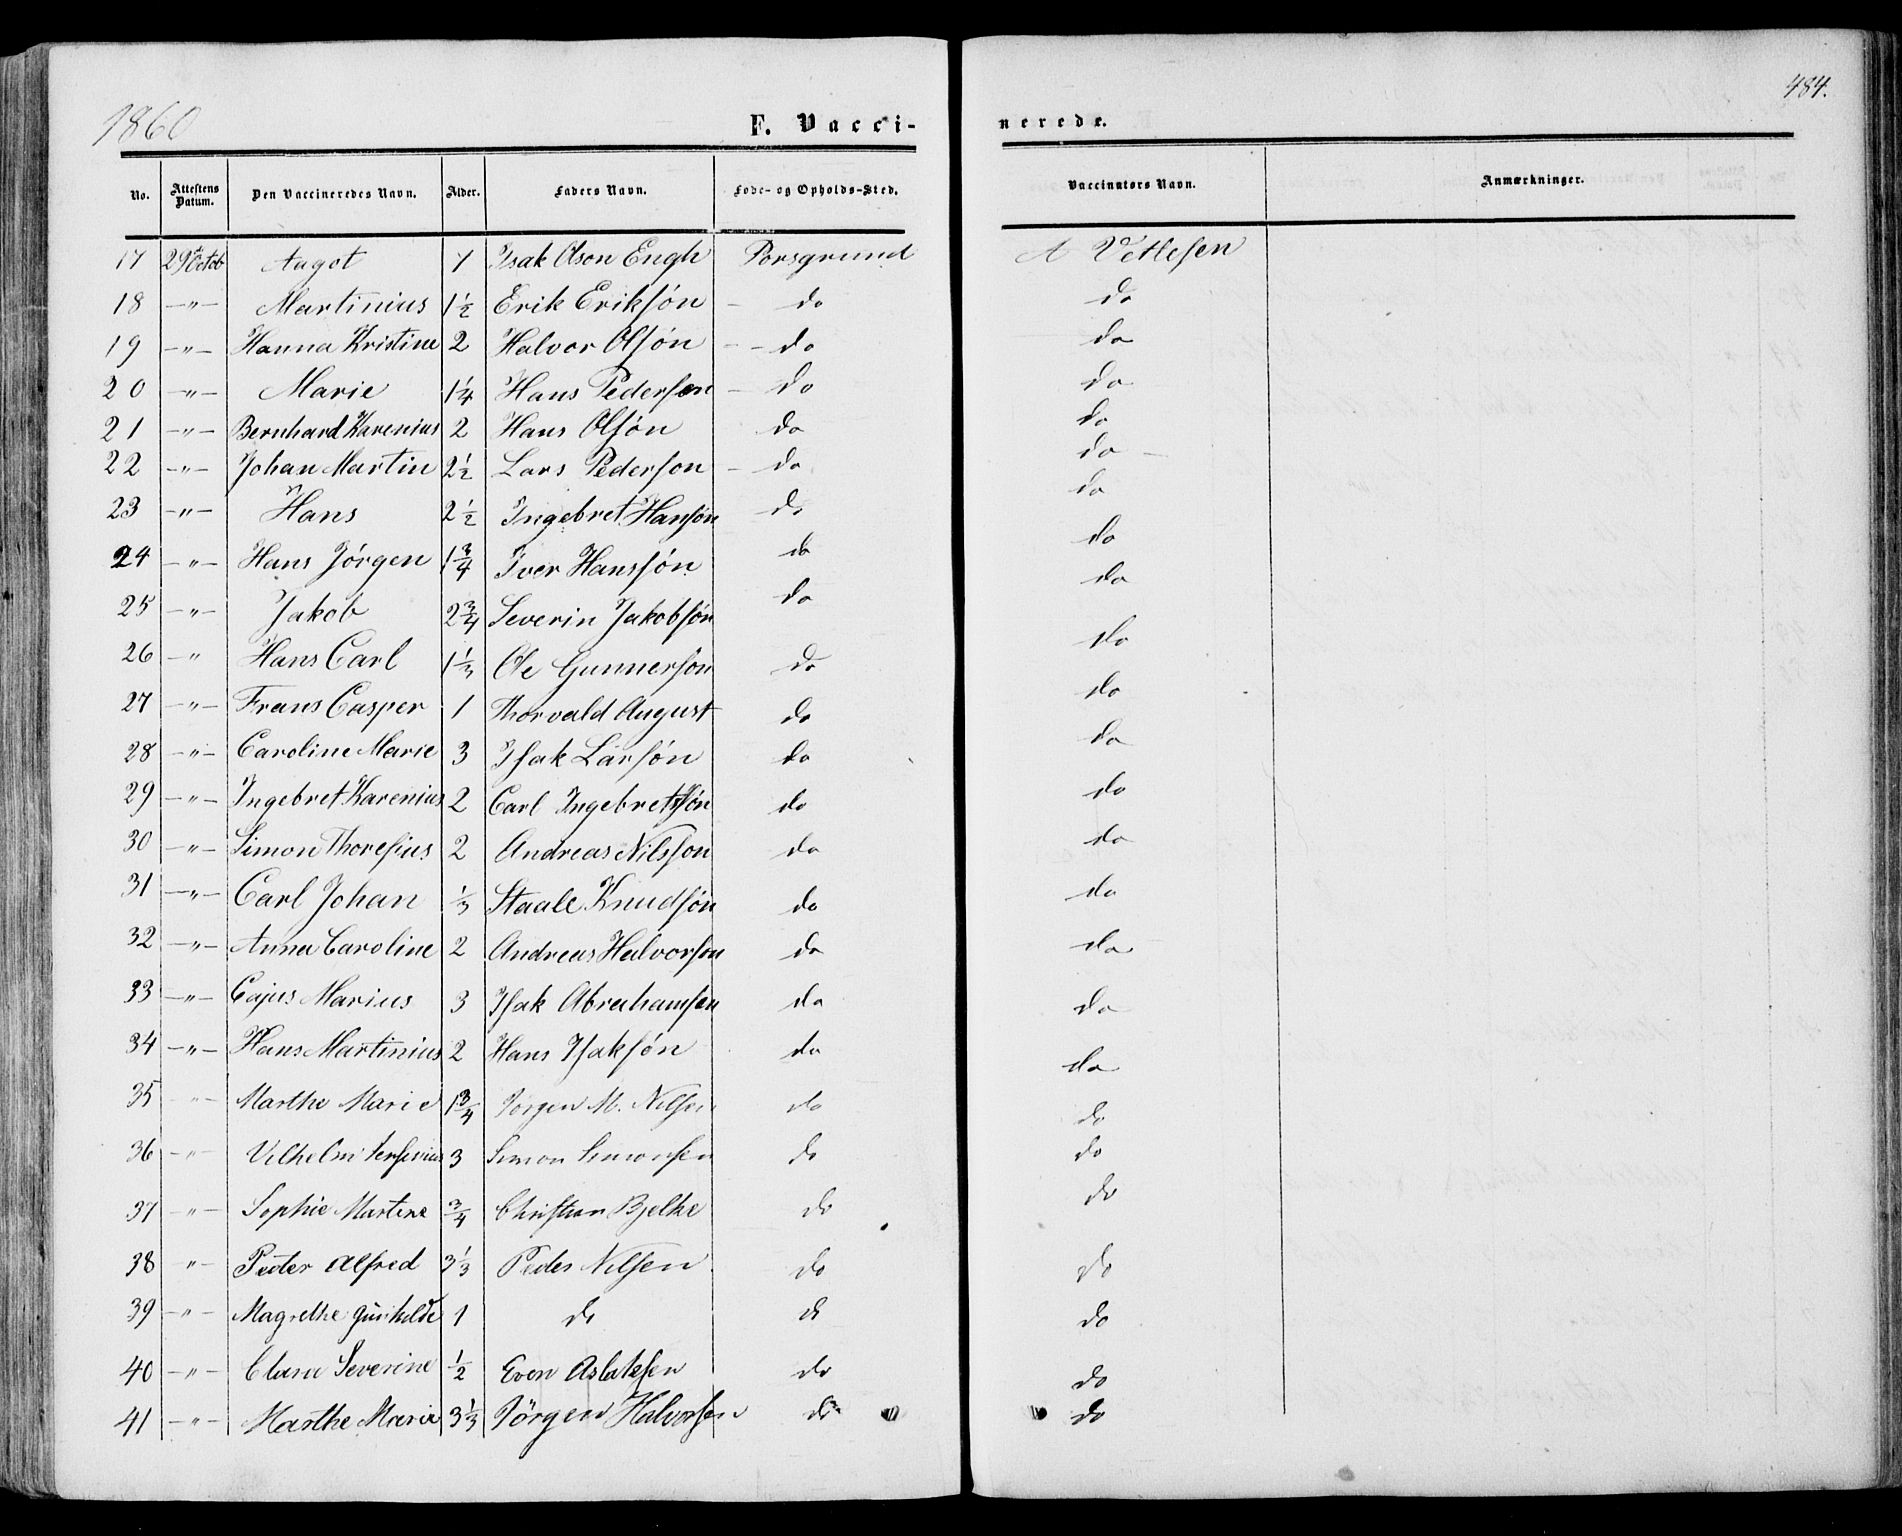 484.
1860 F. Vacci- nerede.
No. Attestens Datum. Den Vaccineredes Navn. Alder. Faders Navn. Føde- og Opholds-Sted. Vaccinators Navn. Anmærkninger.
17 29 Octob Aagot 1 Isak Olson Engh Porsgrund A Vetlesen
18 -"- Martinius 1½ Erik Eriksøn - do do
19 -"- Hanna Kristine 2 Halvor Olsøn - - do do
20 -"- Marie 1¼ Hans Pedersen - do do
21 -"- Bernhard Karenius 2 Hans Olsøn do do
22 -"- Johan Martin 2½ Lars Pederson - do do -
23 -"- Hans 2½ Ingebret Hansøn do do
24 -"- Hans Jörgen 1¾ Iver Hanssøn do do
25 -"- Jakob 2¾ Severin Jakobsøn do do
26 -" Hans Carl 1⅓ Ole Gunnersøn do do
27 -"- Frans Casper 1 Thorvald August do do
28 -"- Caroline Marie 3 Isak Larsøn do do
29 -"- Ingebret Karenius 2 Carl Ingebretsøn do do
30 -"- Simon Thoresius 2 Andreas Nilsson do do
31 -"- Carl Johan ⅓ Staale Knudsøn do do
32 -"- Anna Caroline 2 Andreas Halvorson do do
33 -"- Cajus Marius 3 Isak Abrahamsen do do
34 -"- Hans Martinius 2 Hans Isaksøn do do
35 -"- Marthe Marie 1¾ Jørgen M. Nilsen do do
36 -"- Vilhelm 3 Simon Simonsen do do
37 -"- Sophie Martine ¾ Christian Bjelke do do
38 -"- Peder Alfred 3⅓ Peder Nilsen do do
39 -"- Magrethe Gunhilde 1 do do do
40 -"- Clara Severine ½ Even Aslaksen do do
41 -"- Marthe Marie 3⅓ Jörgen Halvorsen do do